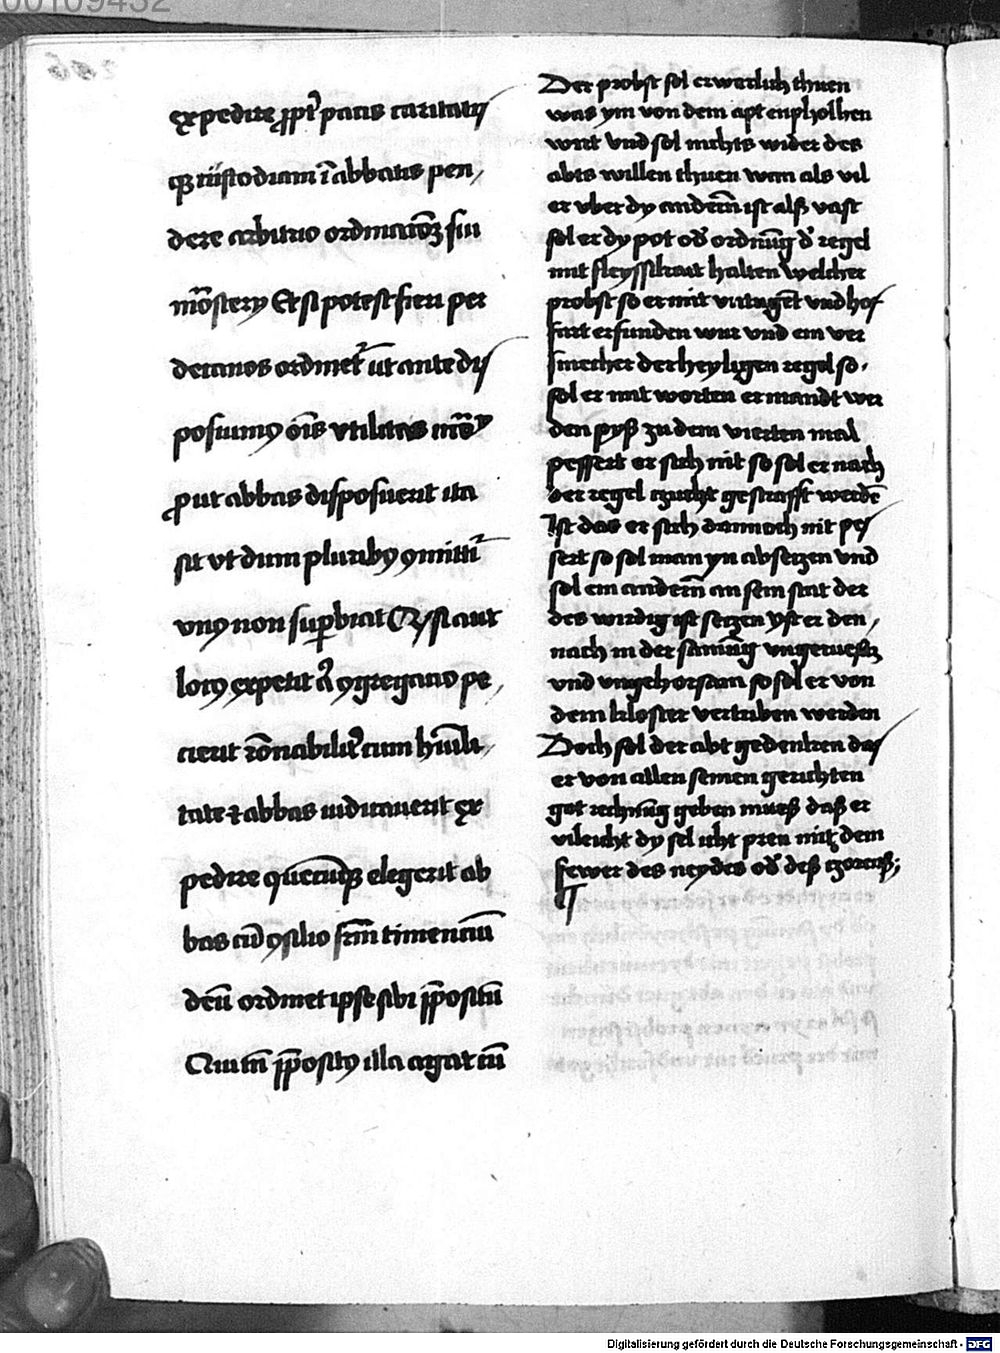 expedire ꝓpt̄ pacis caritatis
qꝫ custodiam ī abbatis pen„
dere arbitrio ordinacōꝫ sui
mōstery Et si potest fieri per
decanos ordinet᷑ ut ante dis
posuimꝰ oīs vtilitas mōꝰ
ꝓut abbas disposuerit ita
sit vt dum pluribꝰ ꝯmittit᷑
vnꝰ non suꝑbiat Qꝛ si aut
locꝰ expetit a᷑ ꝯgregatio pe„
cierit rōnabilit᷑ cum hūili„
tate ⁊ abbas iudicauerit ex
pedire quēcūqꝫ elegerit ab
bas cū ꝯsilio frm̄ timenciū
deū ordinet ipse sibi p̄positū
Qui tn̄ p̄positꝰ illa agat cū
Der probst sol erwerlich thuen
was ym von dem apt enpholhen
wirt vnd sol nichts wider des
abts willen thuen wan als vil
er vber dy andern̄ ist alß vast
sol er dy pot od᷑ ordnūg d᷑ regel
mit fleyssikait halten Welcher
probst so er mit vntugēt vnd hof
fart erfunden wur vnd ein ver
smecher der heyligen regel so„
sol er mit worten ermandt wer
den pyß zu dem vierten mal
pessert er sich nit so sol er nach
der regel czucht gestrafft werdē
Ist das er sich dannoch nit pes
sert so sol man yn absetzen vnd
sol ein andern̄ an sein stat der
des wirdig ist setzen Yst er den„
nach in der samūg vngeruebig
vnd vngehorsam so sol er von
dem kloster vertriben werden
Doch sol der abt gedenken das
er von allen seinen gerichten
got rechnūg geben mueß daß er
vileicht dy sel icht pren mit dem
fewer des neydes od᷑ deß czorenß;